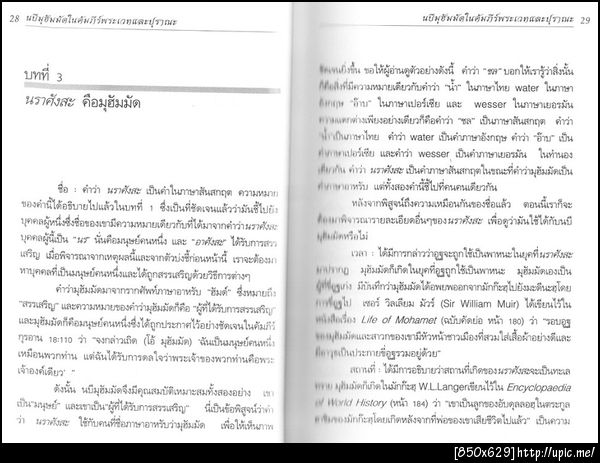 28 นบีมุฮัมมัดในคัมภีร์พระเวทและปุราณะ
บทที่ 3
นราศังสะ คือมุฮัมมัด
ชื่อ : คำว่า นราศังสะ เป็นคำในภาษาสันสกฤต ความหมาย
ของคำนี้ได้อธิบายไปแล้วในบทที่ 1 ซึ่งเป็นที่ชัดเจนแล้วว่ามันชี้ไปยัง
บุคคลผู้หนึ่งซึ่งชื่อของเขามีความหมายเดียวกับที่ได้มาจากคำว่านราศังสะ
บุคคลผู้นี้เป็น "นร" นั่นคือมนุษย์คนหนึ่ง และ "อาศังสะ" ได้รับการสรร
เสริญ เมื่อพิจารณาจากเหตุผลนี้และจากตัวบ่งชี้ก่อนหน้านี้ เราจะต้องมา
หาบุคคลที่เป็นมนุษย์คนหนึ่งและได้ถูกสรรเสริญด้วยวิธีการต่างๆ
คำว่ามุฮัมมัดมาจากรากศัพท์ภาษาอาหรับ "ฮัมด์" ซึ่งหมายถึง
"สรรเสริญ" และความหมายของคำว่ามุฮัมมัดก็คือ "ผู้ที่ได้รับการสรรเสริญ"
และมุฮัมมัดก็คือมนุษย์คนหนึ่งซึ่งได้ถูกประกาศไว้อย่างชัดเจนในคัมภีร์
กุรอาน 18:110 ว่า "จงกล่าวเถิด (โอ้ มุฮัมมัด) 'ฉันเป็นมนุษย์คนหนึ่ง
เหมือนพวกท่าน แต่ฉันได้รับการดลใจว่าพระเจ้าของพวกท่านคือพระเจ้า
องค์เดียว' "
ดังนั้น นบีมุฮัมมัดจึงมีคุณสมบัติเหมาะสมทั้งสองอย่าง เขา
เป็น"มนุษย์" และเขาเป็น"ผู้ที่ได้รับการสรรเสริญ" นี่เป็นข้อพิสูจน์ว่าคำ
ว่า นราศังสะ ใช้กับคนที่ชื่อภาษาอาหรับว่ามุฮัมมัด เพื่อให้เห็นภาพ
นบีมุฮัมมัดในคัมภีร์พระเวทและปุราณะ 29
ชัดเจนยิ่งขึ้น ขอให้ผู้อ่านดูตัวอย่างดังนี้ คำว่า "ชล" บอกให้เรารู้ว่าสิ่งนั้น
ก็คือสิ่งที่มีความหมายเดียวกับคำว่า "น้ำ" ในภาษาไทย water ในภาษา
อังกฤษ "อ๊าบ" ในภาษาเปอร์เซีย และ wesser ในภาษาเยอรมัน
ความแตกต่างเพียงอย่างเดียวก็คือคำว่า "ชล" เป็นภาษาสันสกฤต คำว่า
"น้ำ"เป็นภาษาไทย คำว่า water เป็นคำภาษาอังกฤษ คำว่า "อ๊าบ" เป็น
คำภาษาเปอร์เซีย และคำว่า wesser เป็นคำภาษาเยอรมัน ในทำนอง
เดียวกัน คำว่า นราศังสะ เป็นคำภาษาสันสกฤตในขณะที่คำว่ามุฮัมมัดเป็น
คำภาษาอาหรับ แต่ทั้งสองคำนี้ชี้ไปที่คนคนเดียวกัน
หลังจากพิสูจน์ถึงความเหมือนกันของชื่อแล้ว ตอนนี้เราก็จะ
ต้องมาพิจารณารายละเอียดอื่นๆของนราศังสะ เพื่อดูว่ามันใช้ได้กับนบี
มุฮัมมัดหรือไม่
เวลา : ได้มีการกล่าวว่าอูฐจะถูกใช้เป็นพาหนะในยุคที่นราศังสะ
มาปรากฏ มุฮัมมัดก็เกิดในยุคที่อูฐถูกใช้เป็นพาหนะ มุฮัมมัดเองเป็น
ผู้ที่ขี่อูฐเก่ง มีบันทึกว่ามุฮัมมัดได้อพยพออกจากมักก๊ะฮฺไปยังมะดีนะฮฺโดย
การขี่อูฐไป เซอร์ วิลเลียม มัวร์ (Sir William Muir) ได้เขียนไว้ใน
หนังสือเรื่อง Life of Mohamet (ฉบับคัดย่อ หน้า 180) ว่า "รอบอูฐ
ของมุฮัมมัดและสาวกของเขามีหัวหน้าชาวเมืองที่สวมใส่เสื้อผ้าอย่างดีและ
มีอาวุธเป็นประกายขี่อูฐรวมอยู่ด้วย"
สถานที่ : ได้มีการอธิบายว่าสถานที่เกิดของนราศังสะจะเป็นทะเล
ทราย มุฮัมมัดก็เกิดในมักก๊ะฮฺ W.L.Langerเขียนไว้ใน Encyclopaedia
of World History (หน้า 184) ว่า "เขาเป็นลูกของอับดุลลอฮฺในตระกูล
ฮาชิมของมักก๊ะฮฺโดยเกิดหลังจากที่พ่อของเขาเสียชีวิตไปแล้ว" เป็นความ
[850x629]http://upic.me/